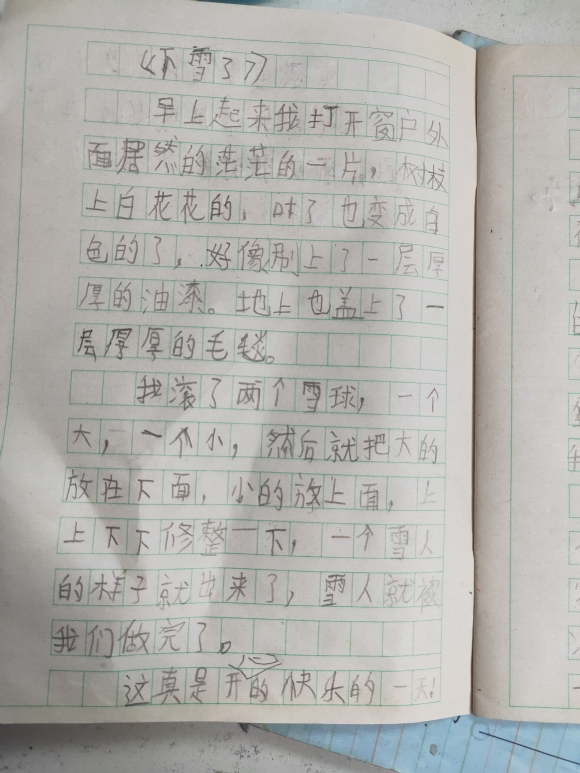 《下雪了》
早上起来我打开窗户外
面居然的茫茫的一片，树枝
上白花花的，叶了也变成白
色的了，好像刷上了一层厚
厚的油漆。地上也盖上了一
层厚厚的毛毯。
我滚了两个雪球，一个
大，一个小，然后就把大的
放在下面，小的放上面，上
上下下修整一下，一个雪人
的样子就出来了，雪人就被
我们做完了。
这真是开心的快乐的一天！